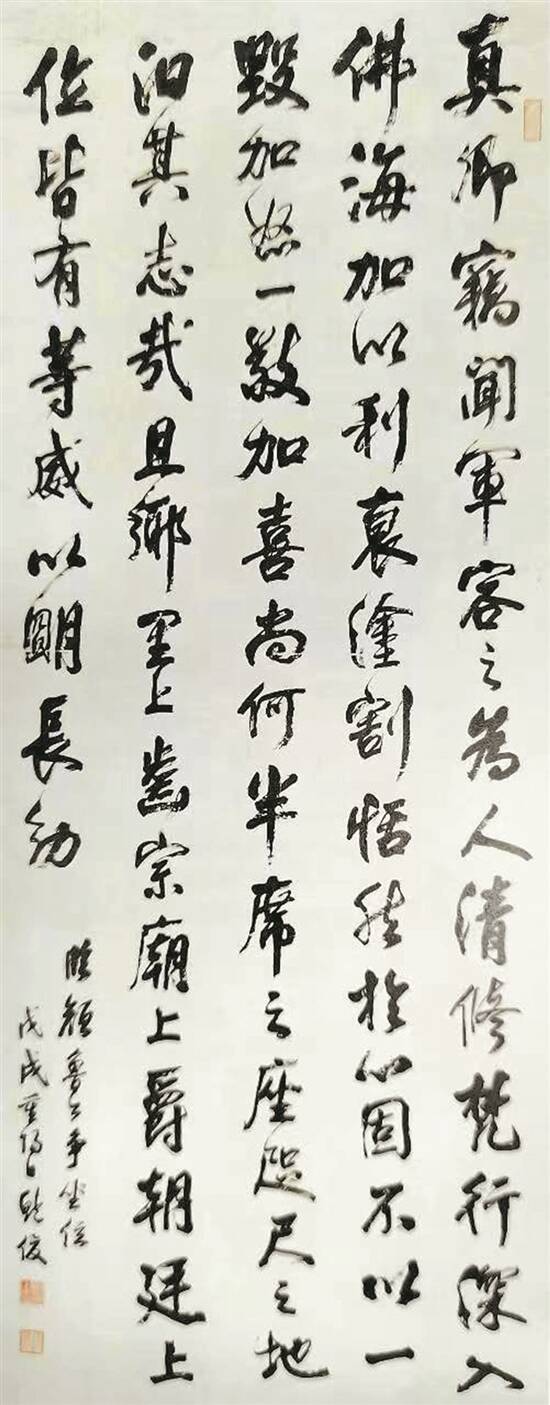 真卿竊聞軍容之為人清修梵行深入
佛海加以利衰塗割恬然於心固不以一
毀加怒一敬加喜尚何半席之座咫尺之地
汩其志哉且鄉里上齒宗廟上爵朝廷上
位皆有等威以明長幼
臨顏魯公爭坐位
戊戌重陽日鮑俊